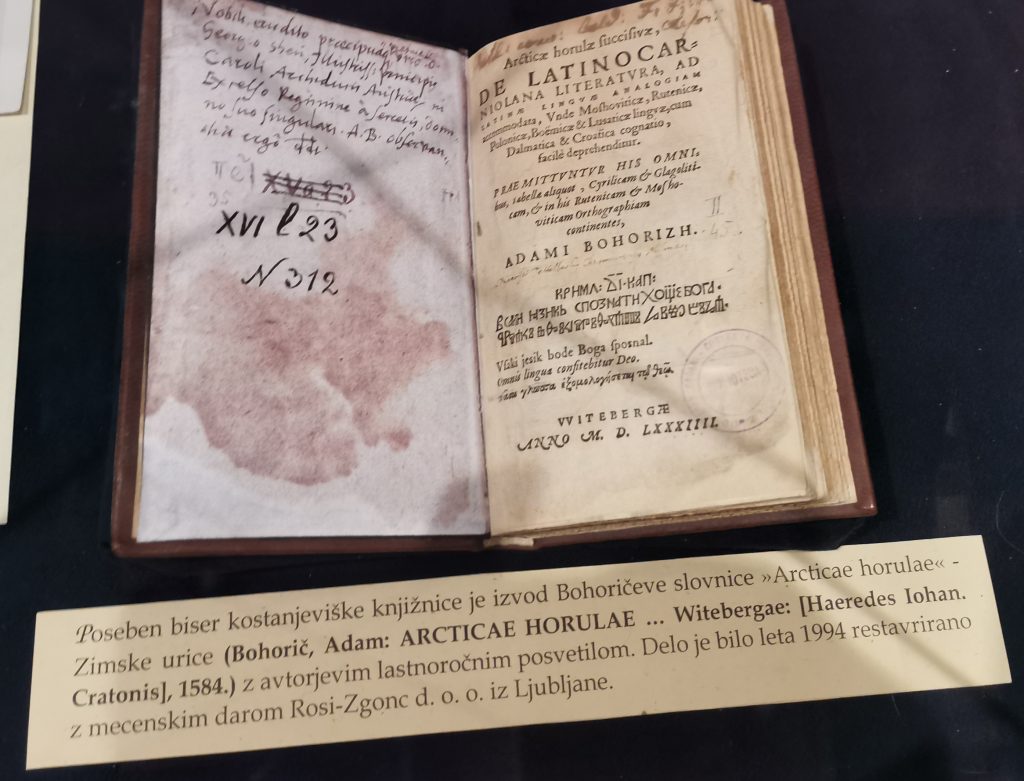 Nobili, erudito
Georgio
Caroli Archiducis Austriae
Excelso Regimine a secretis,
no suo singulari. A. B. observan.
ergo
XVI l 23
N 312
Arcticæ horulæ succisivæ,
DE LATINOCAR-
NIOLANA LITERATVRA, AD
LATINÆ LINGVÆ ANALOGIAM
accommodata, Vnde Moshoviticæ, Rutenicæ,
Polonicæ, Boëmicæ & Lusaticæ lingvæ, cum
Dalmatica & Croatica cognatio,
facilè deprehenditur.
PRAEMITTVNTVR HIS OMNI-
bus, tabellæ aliquot, Cyrilicam & Glagoliti-
cam, & in his Rutenicam & Mosho-
viticam Orthographiam
continentes,
ADAMI BOHORIZH.
II
45
СПОЗНАТИ ХОЩЕ БОГА.
Vſaki jesik bode Boga ſposnal.
Omnis lingua confitebitur Deo.
VVITEBERGÆ
ANNO M. D. LXXXIIII.
Poseben biser kostanjeviške knjižnice je izvod Bohoričeve slovnice »Arcticae horulae« -
Zimske urice (Bohorič, Adam: ARCTICAE HORULAE ... Witebergae: [Haeredes Iohan.
Cratonis], 1584.) z avtorjevim lastnoročnim posvetilom. Delo je bilo leta 1994 restavrirano
z mecenskim darom Rosi-Zgonc d. o. o. iz Ljubljane.